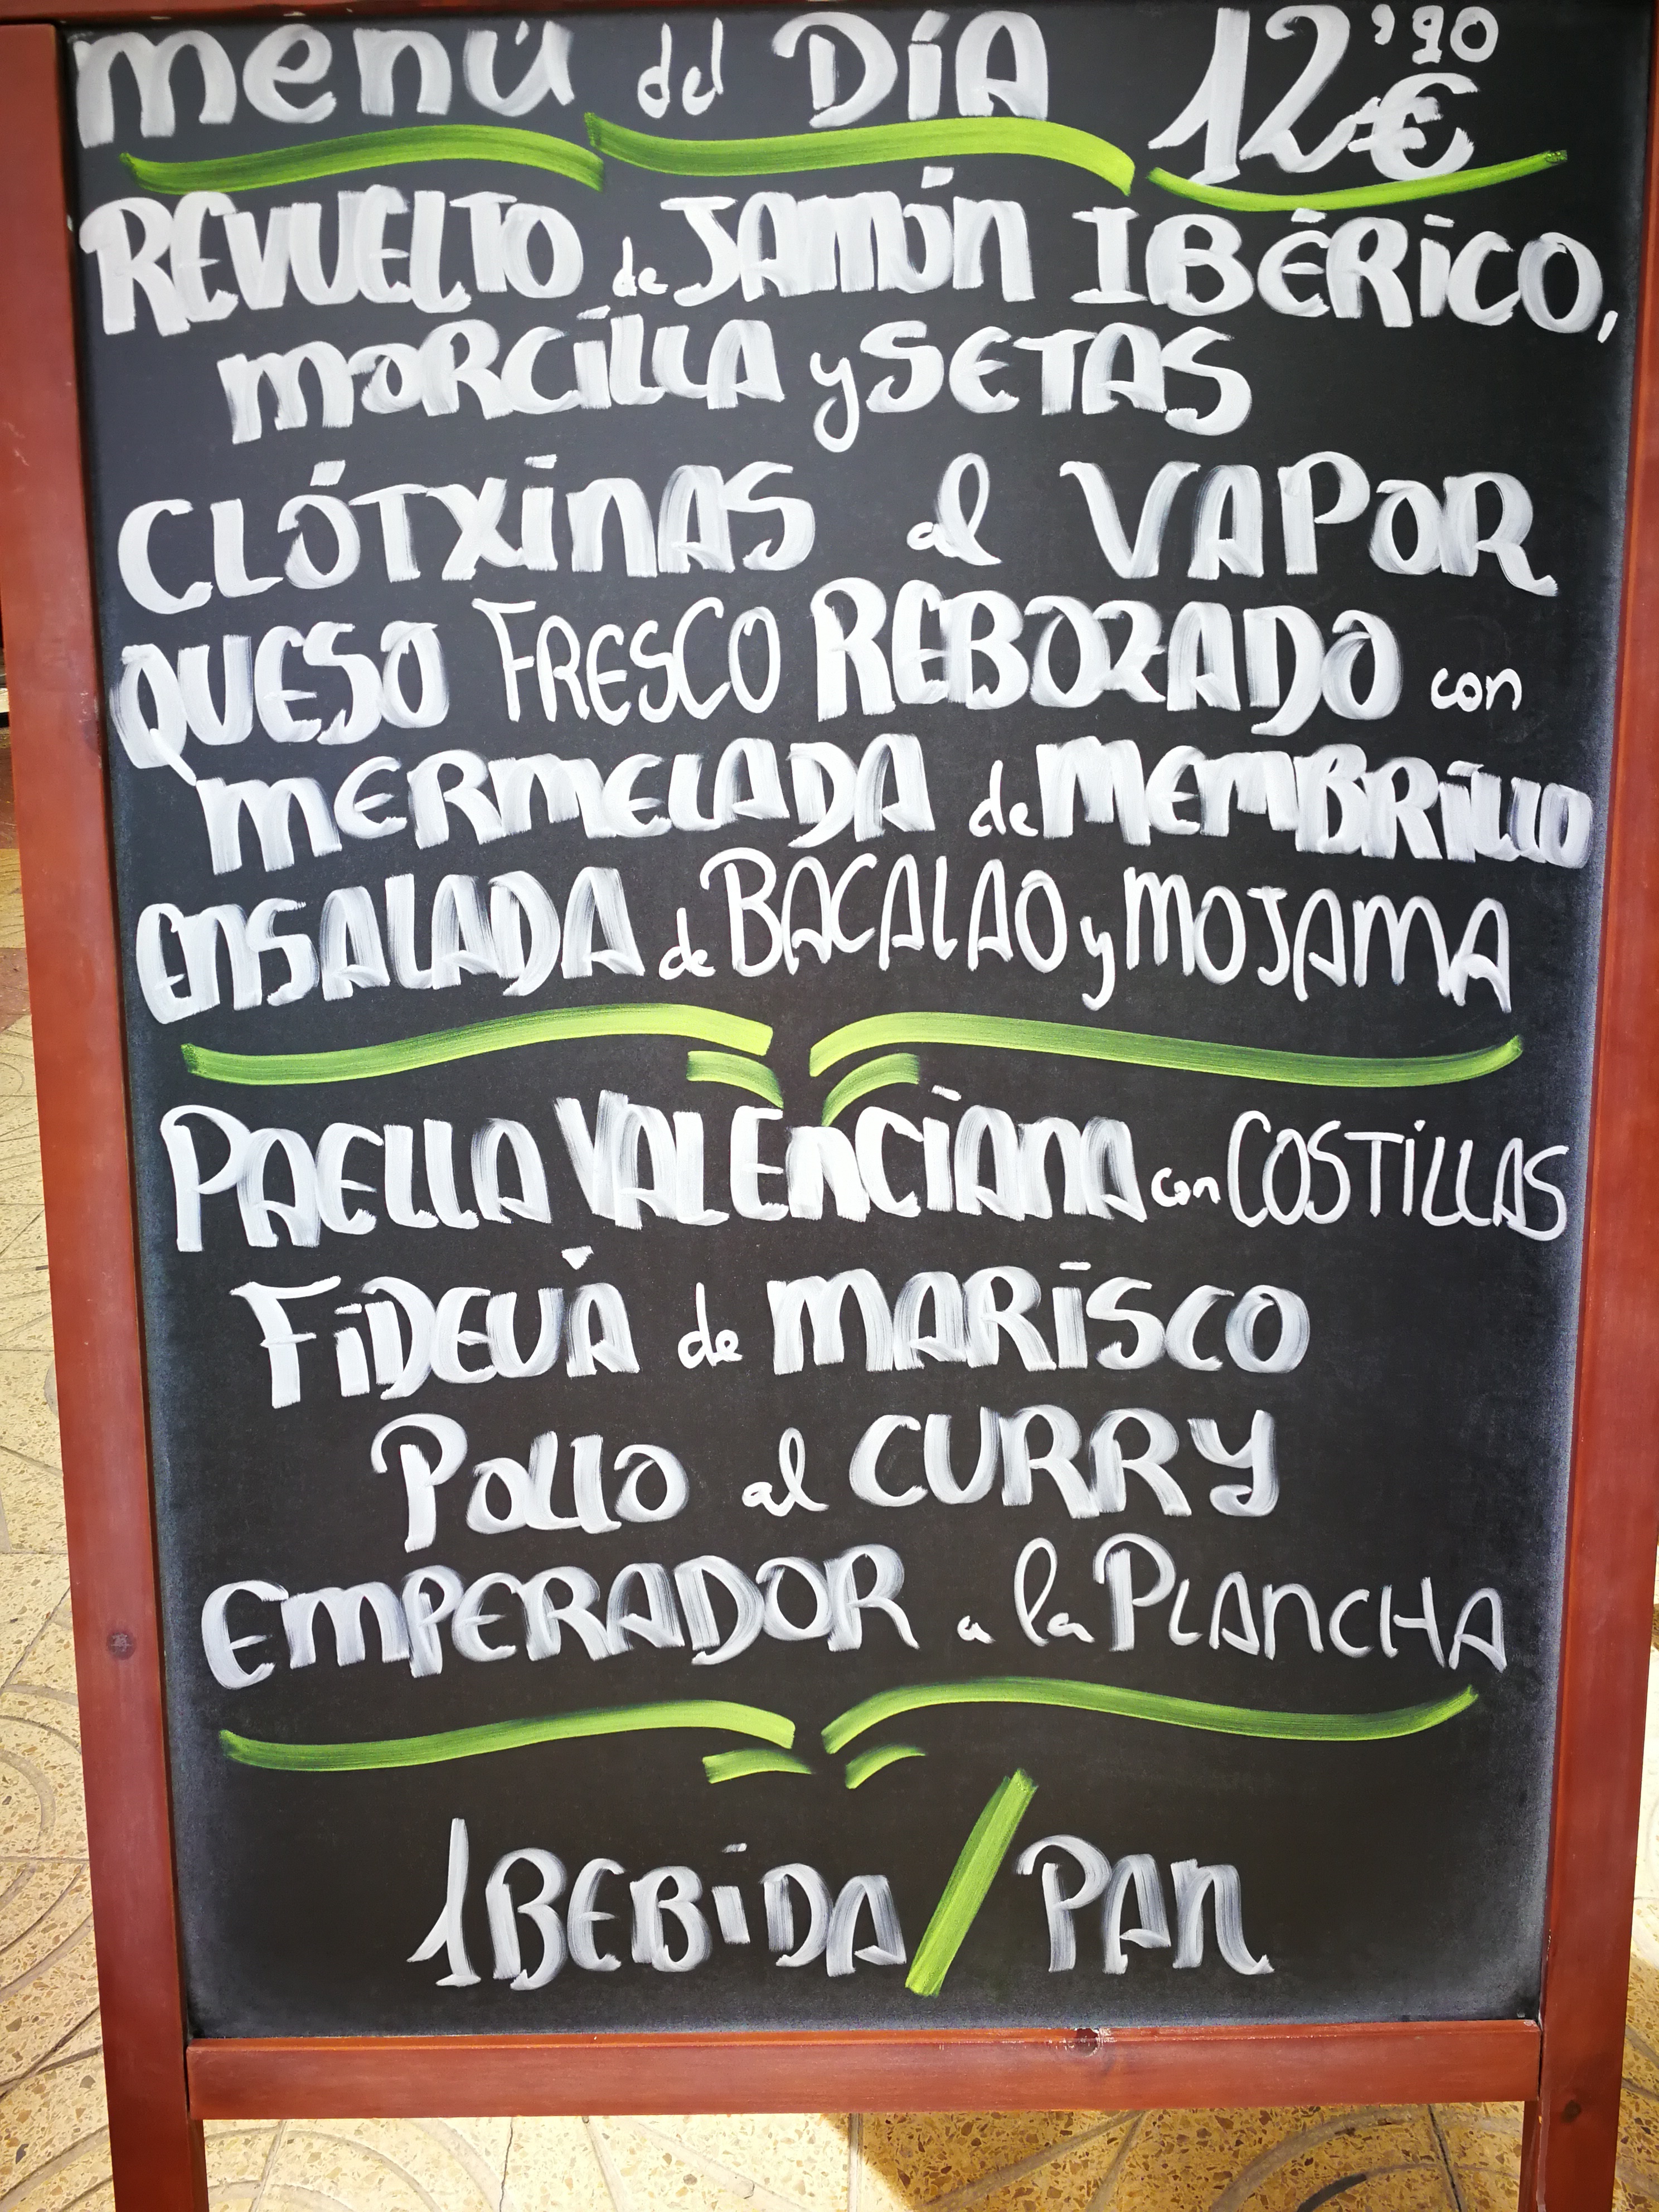 menú del DíA 12'90 €
REVUELTO de JAMÓN IBÉRiCO,
MORCiLLA y SETAS
CLÓTXiNAS al VAPOR
QUESO FRESCO REBOZADO con
MERMELADA de MEMBRiLLO
ENSALADA de BACALAO y MOJAMA
PAELLA VALENCiANA con COSTiLLAS
FiDEUÀ de MARiSCO
Pollo al CURRY
EMPERADOR a la PLANCHA
1 BEBiDA / PAN